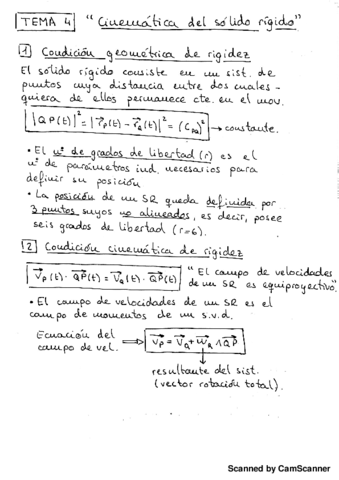 TEMA 4 " Cinemática del sólido rígido"
1 Condición geométrica de rigidez
El sólido rígido consiste en un sist. de
puntos cuya distancia entre dos cuales-
quiera de ellos permanece cte. en el mov.
|QP(t)|² = |r⃗P(t) - r⃗Q(t)|² = (CPQ)² → constante.
• El nº de grados de libertad (r) es el
nº de parámetros ind. necesarios para
definir su posición.
• La posición de un SR queda definida por
3 puntos suyos no alineados, es decir, posee
seis grados de libertad (r=6).
2 Condición cinemática de rigidez
V⃗P(t) · QP⃗(t) = V⃗Q(t) · QP⃗(t) " El campo de velocidades
de un SR es equiproyectivo"
• El campo de velocidades de un SR es el
campo de momentos de un s.v.d.
Ecuación del
campo de vel. ⇒ V⃗P = V⃗Q + W⃗R ∧ QP⃗
resultante del sist.
(vector rotación total).
Scanned by CamScanner